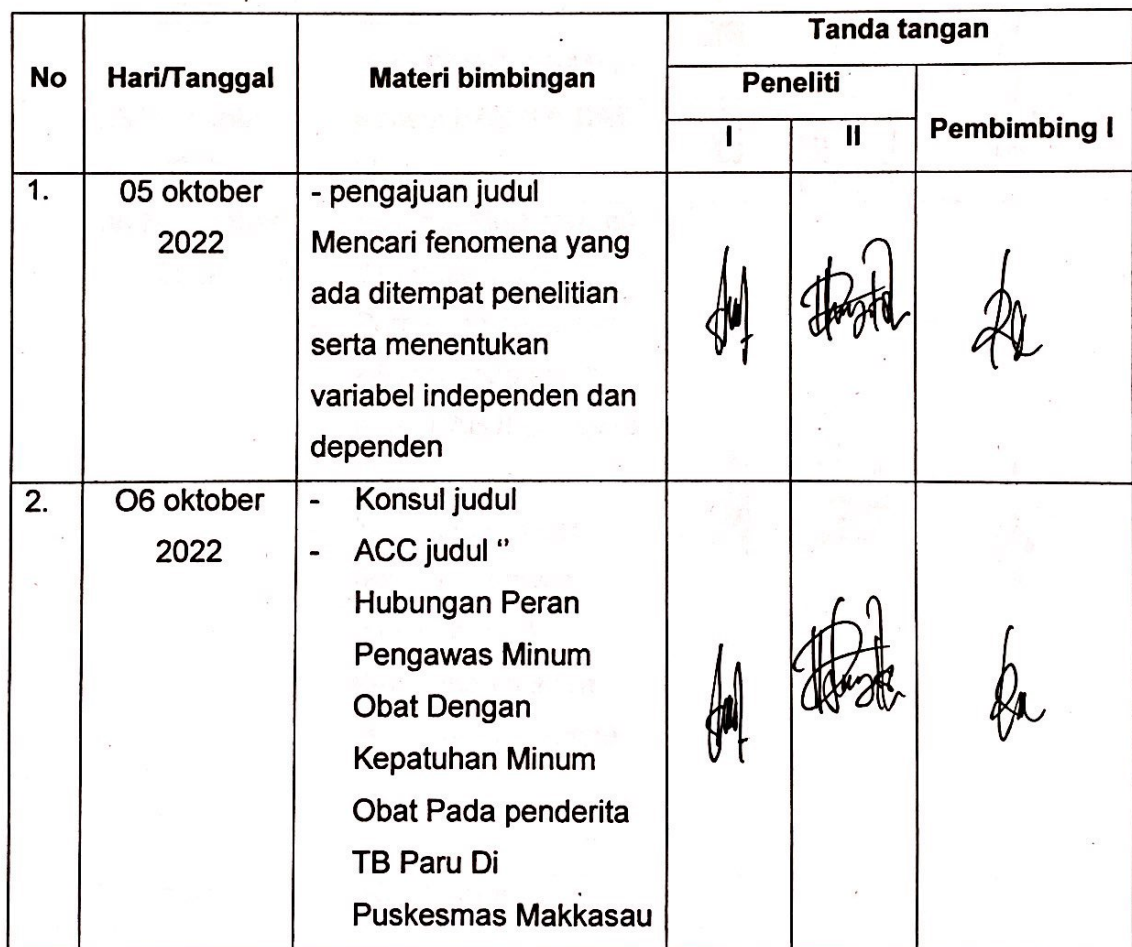 No
Hari/Tanggal
Materi bimbingan
Tanda tangan
Peneliti
Pembimbing I
I
II
1.
05 oktober
2022
- pengajuan judul
Mencari fenomena yang
ada ditempat penelitian
serta menentukan
variabel independen dan
dependen
2.
O6 oktober
2022
- Konsul judul
- ACC judul “
Hubungan Peran
Pengawas Minum
Obat Dengan
Kepatuhan Minum
Obat Pada penderita
TB Paru Di
Puskesmas Makkasau